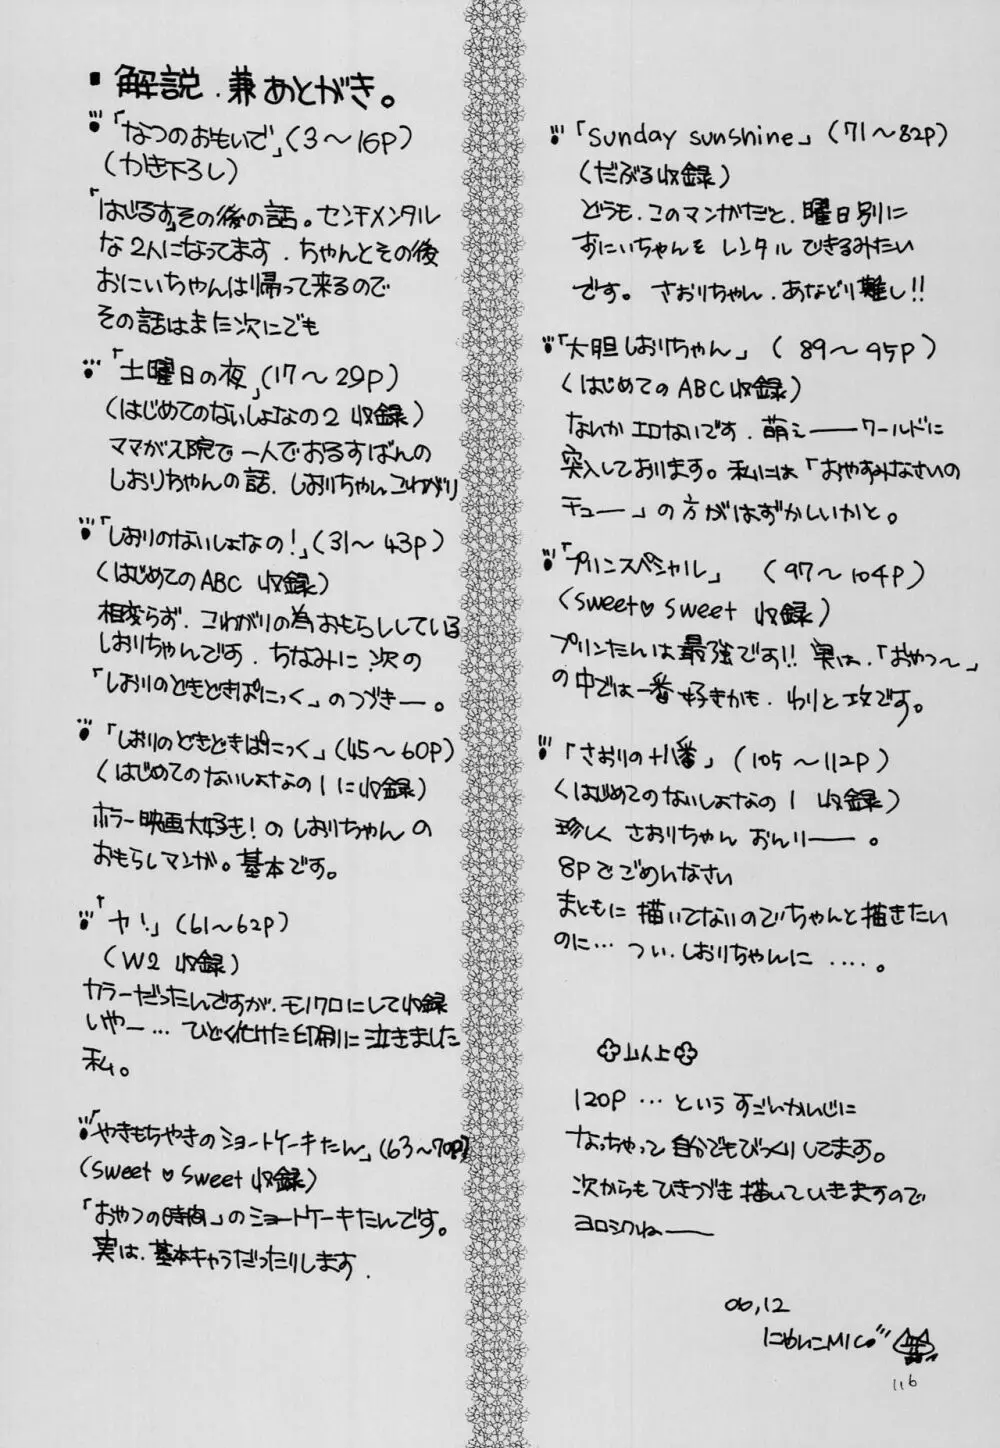 ・解説.兼あとがき。
「なつのおもいで」(3〜16P)
(かき下ろし)
「はじるす」その後の話。センチメンタル
な2人になってます.ちゃんとその後
おにいちゃんは帰って来るので
その話はまた次にでも
「土曜日の夜」(17〜29P)
(はじめてのないしょなの2 収録)
ママが入院で一人でおるすばんの
しおりちゃんの話.しおりちゃんこわがり
「しおりのないしょなの!」(31〜43P)
(はじめてのABC 収録)
相変らず.こわがりの為おもらししている
しおりちゃんです.ちなみに次の
「しおりのどきどきぱにっく」のつづきー。
「しおりのどきどきぱにっく」(45〜60P)
(はじめてのないしょなの1に収録)
ホラー映画大好き!のしおりちゃんの
おもらしマンガ。基本です。
「ヤ!」(61〜62P)
(W2 収録)
カラーだったんですが.モノクロにして収録
いやー…ひどく化けた印刷に泣きました
私。
「やきもちやきのショートケーキたん」(63〜70P)
(Sweet♡Sweet収録)
「おやつの時間」のショートケーキたんです。
実は.基本キャラだったりします.
「Sunday sunshine」(71〜82P)
(だぶる収録)
どうも.このマンガだと.曜日別に
おにいちゃんをレンタルできるみたい
です。さおりちゃん.あなどり難し!!
「大胆しおりちゃん」(89〜95P)
(はじめてのABC収録)
なんかエロないです.萌えーワールドに
突入しております。私には「おやすみなさいの
チュー」の方がはずかしいかと。
「プリンスペシャル」(97〜104P)
(Sweet♡Sweet収録)
プリンたんは最強です!!実は.「おやつ〜」
の中では一番好きかも.わりと攻です。
「さおりの十八番」(105〜112P)
(はじめてのないしょなの1 収録)
珍しくさおりちゃんおんりー。
8Pでごめんなさい
まともに描いてないのでちゃんと描きたい
のに…つい.しおりちゃんに….。
以上
120P…というすごいかんじに
なっちゃって自分でもびっくりしてます。
次からもひきつづき描いていきますので
ヨロシクねー
06,12
にゃんこMIC
116